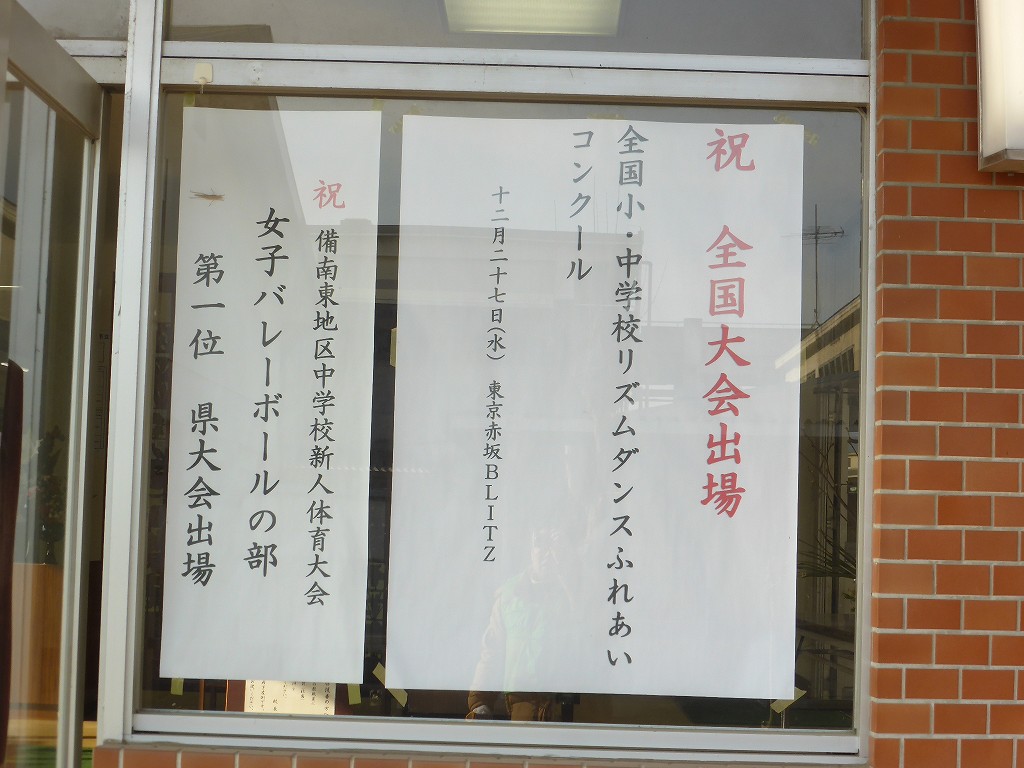 祝 全国大会出場
全国小・中学校リズムダンスふれあい
コンクール
十二月二十七日(水) 東京赤坂BLITZ
祝 備南東地区中学校新人体育大会
女子バレーボールの部
第一位 県大会出場